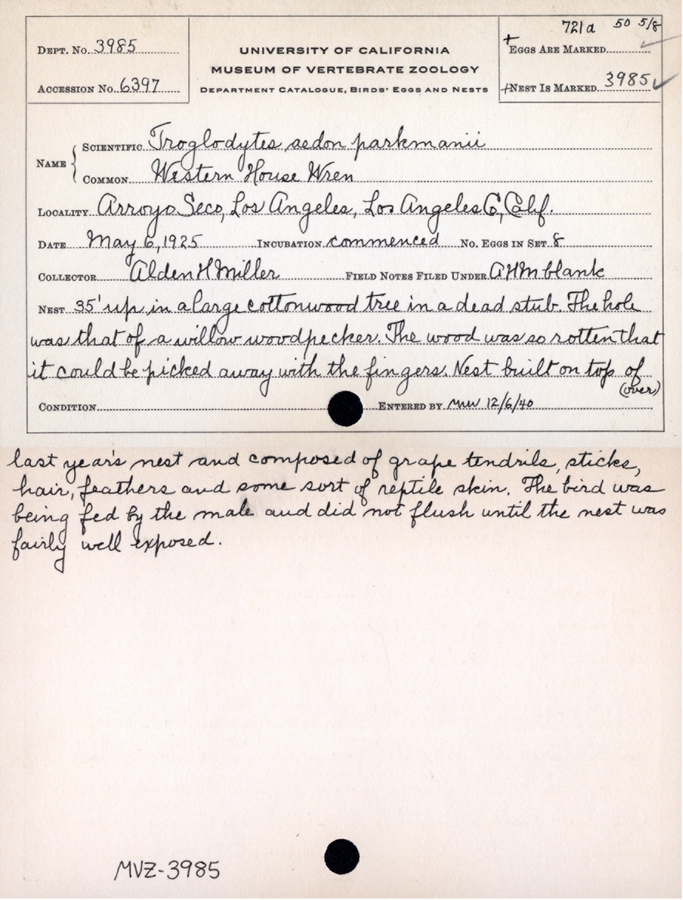 721a 50 5/8
DEPT. No. 3985
UNIVERSITY OF CALIFORNIA
+ EGGS ARE MARKED
MUSEUM OF VERTEBRATE ZOOLOGY
ACCESSION No. 6397
DEPARTMENT CATALOGUE, BIRDS' EGGS AND NESTS
+ NEST IS MARKED 3985
NAME
SCIENTIFIC Troglodytes aedon parkmanii
COMMON Western House Wren
LOCALITY Arroyo Seco, Los Angeles, Los Angeles Co, Calif.
DATE May 6, 1925 INCUBATION commenced No. EGGS IN SET 8
COLLECTOR Alden H Miller FIELD NOTES FILED UNDER AHM blank
NEST 35' up in a large cottonwood tree in a dead stub. The hole
was that of a willow woodpecker. The wood was so rotten that
it could be picked away with the fingers. Nest built on top of
(over)
CONDITION ENTERED BY MW 12/6/40
last year's nest and composed of grape tendrils, sticks,
hair, feathers and some sort of reptile skin. The bird was
being fed by the male and did not flush until the nest was
fairly well exposed.
MVZ-3985